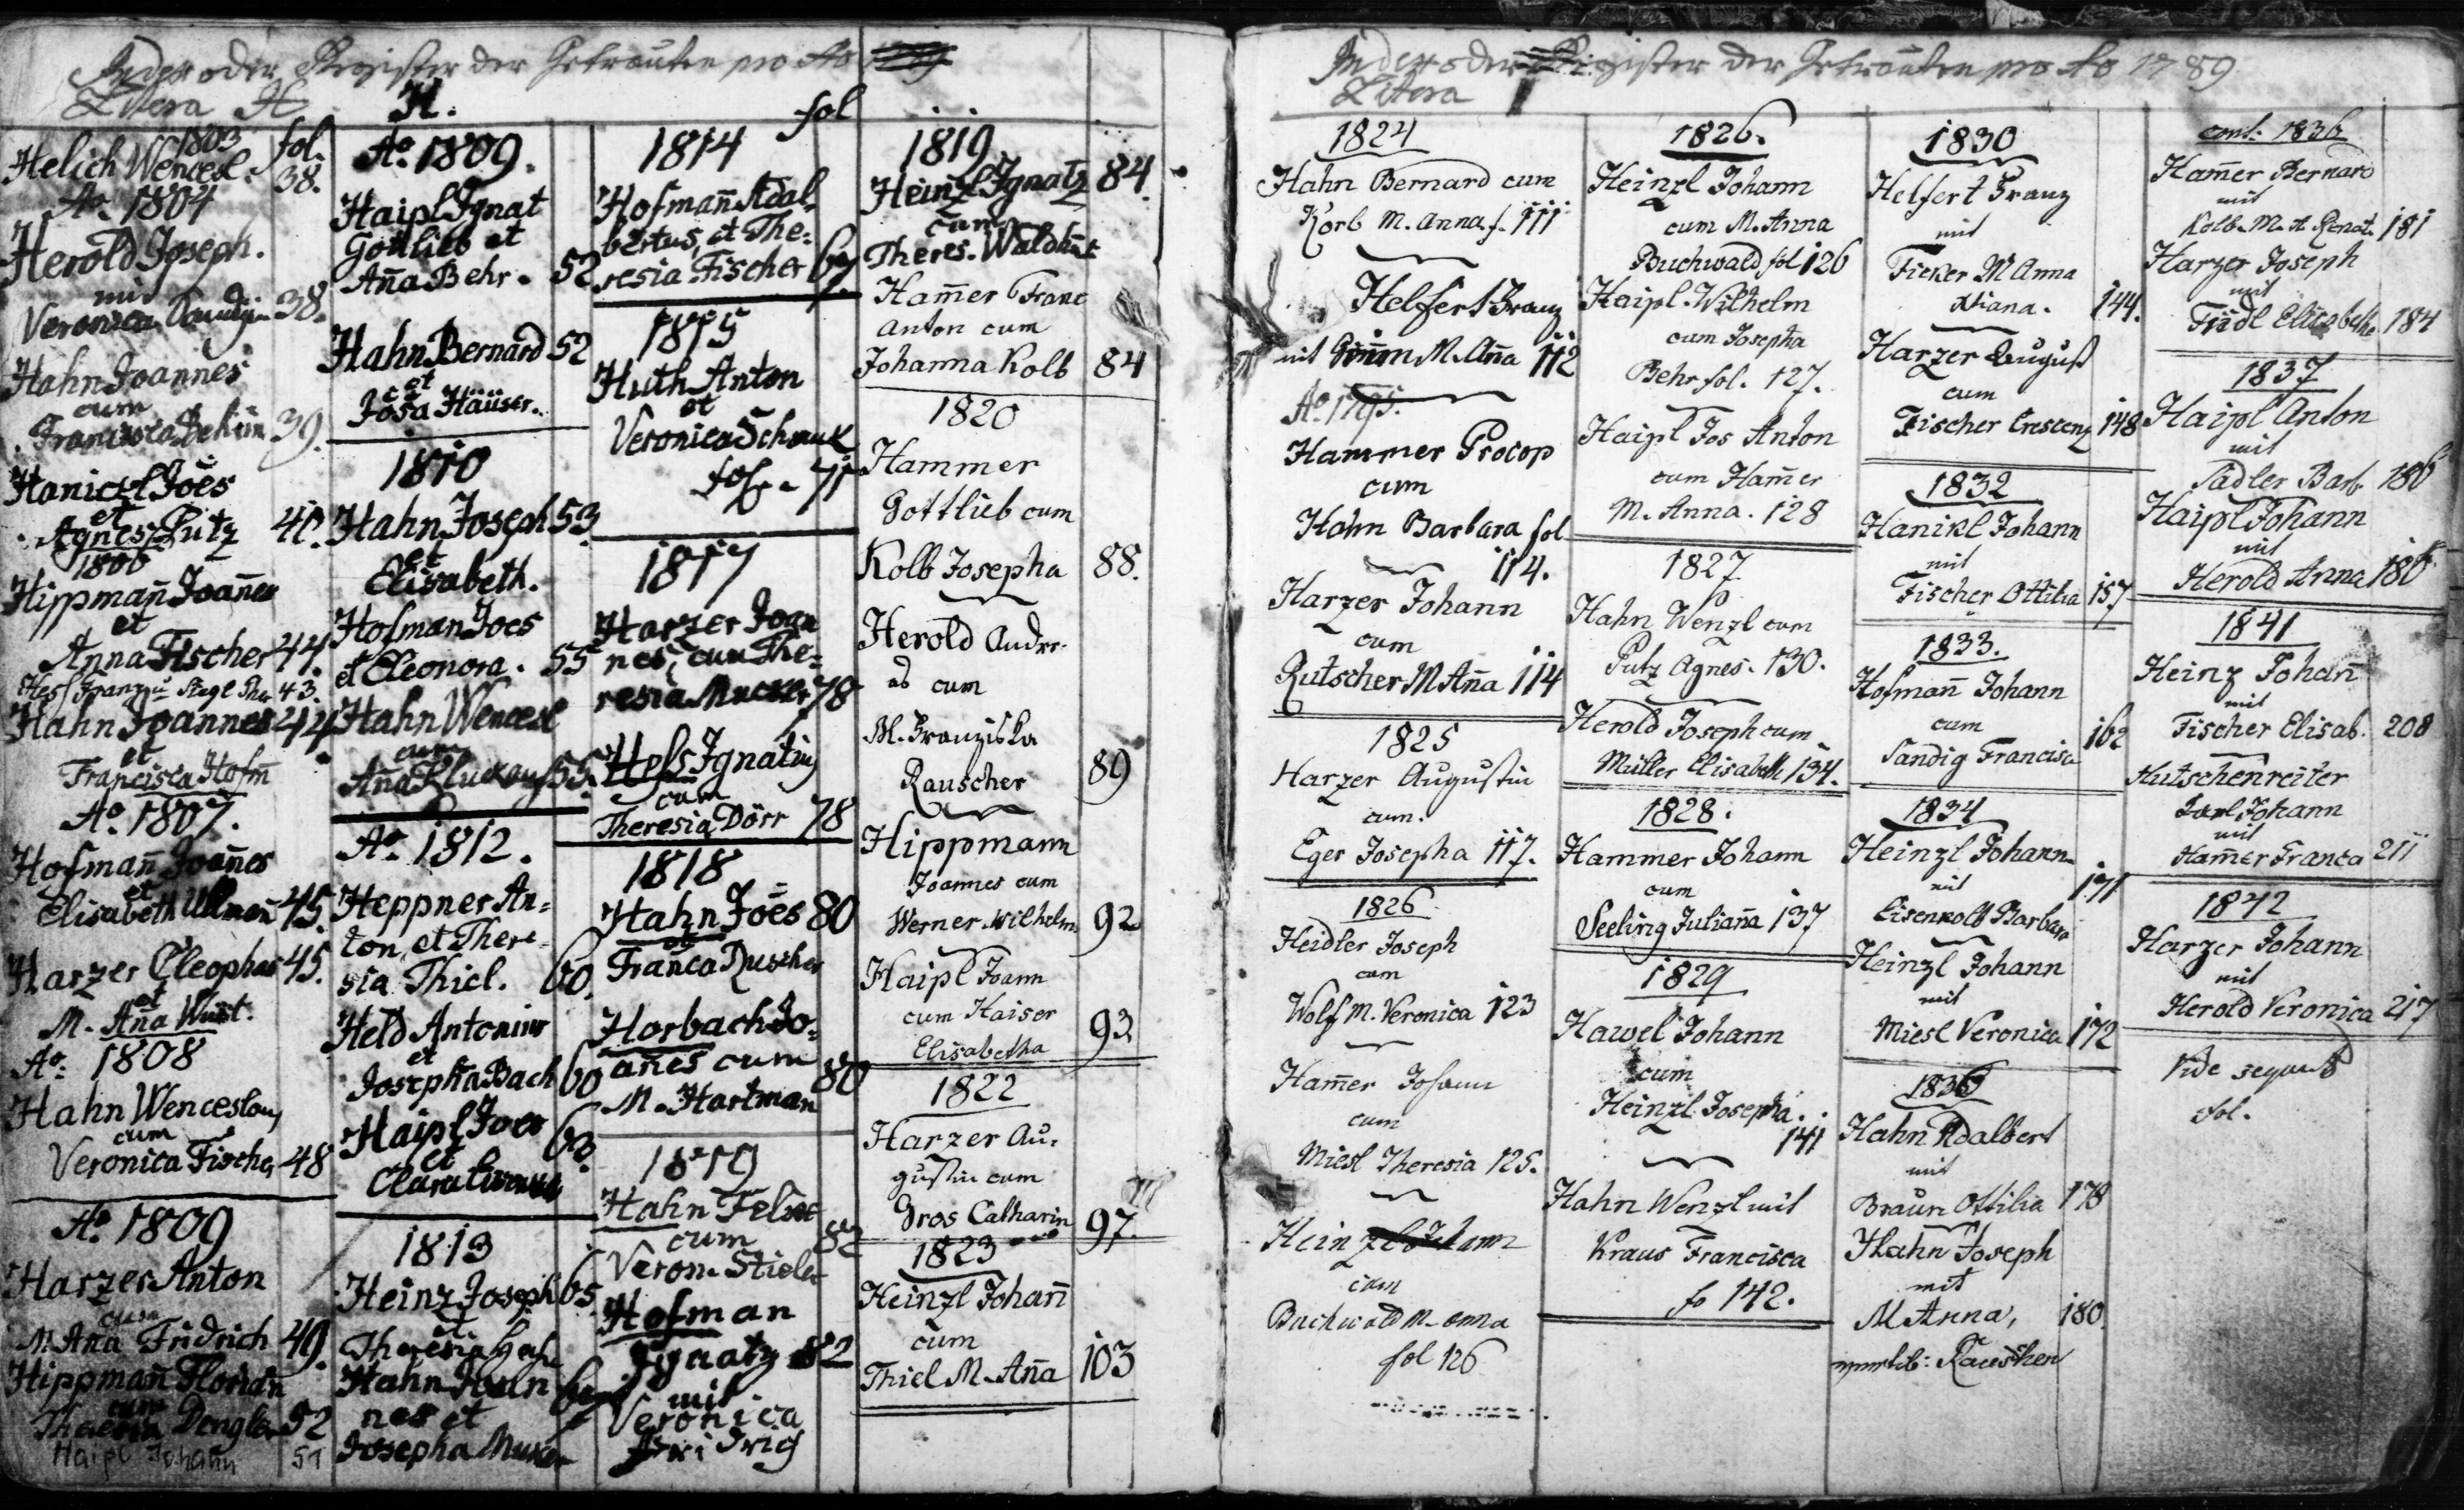 Index oder Register der Getrauten pro Ao
Litera H H. fol
1803 fol.
Helich Wencesl. 38.
Ao. 1804
Herold Joseph.
mit
Veronica 38.
Hahn Joannes
cum
Francisca 39.
Haniczl Joës
et
Agnes Putz 41.
1806
Hippmañ Joañes
et
Anna Fischer 44.
Hess Franz u Siegl The 43.
Hahn Joannes 44
et
Francisca Hofm̄
Ao. 1807.
Hofmañ Joañes
et
Elisabeth Ullmañ 45.
Harzer Cleophas 45.
et
M. Aña Wust.
Ao: 1808
Hahn Wenceslaus
cum
Veronica Fischer 48
Ao. 1809
Harzer Anton
cum
M Aña Fridrich 49.
Hippmañ Florian
cum
Dengler 52
Haipl Johann 51
Ao. 1809.
Haipl Ignat
Gottlieb et
Aña Behr. 52
Hahn Bernard 52
et
Josa Häüser.
1810
Hahn Joseph 53.
et
Elisabeth.
Hofman Joes
et Eleonora. 55
Hahn Wencesl
cum
Aña 55.
Ao. 1812.
Heppner An=
ton, et There=
sia Thiel. 60.
Held Antonius
et
Josepha Bach 60
Haipl Joes 63.
et
Clara
1813
Heinz Joseph 65.
et
Theresia
Hahn
nes et
Josepha
1814
Hofmañ Adal=
bertus, et The=
resia Fischer
1815
Huth Anton
et
Veronica Schmuk
fol. 71
1817
Harzer Joan
nes, cum The=
resia Mucker 78
Heſs Ignatius
cum
Theresia Dörr 78
1818
Hahn Joës 80
et
Franca Ruscher
Horbach Jo=
añes cum 80
M. Hartman
1819
Hahn Felix
cum 82
Veron. Stieler
Hofman
Ignatz 82
mit
Veronica
1819
Heinzl Ignatz 84.
cum
Theres. Waldhüt
Ham̄er Franc
Anton cum
Johanna Kolb 84
1820
Hammer
Gottlieb cum
Kolb Josepha 88.
Herold Andre-
as cum
M. Franziska
Rauscher 89
Hippmann
Joannes cum
Werner Wilhelm. 92
Haipl Joann
cum Kaiser
Elisabetha 93
1822
Harzer Au=
gustin cum
Gros Catharin 97.
1823
Heinzl Johañ
cum
Thiel M. Aña 103
Index oder Register der Getrauten pro Ao 1789
Litera
1824
Hahn Bernard cum
Korb M. Anna f. 111
Helfert Franz
mit M. Aña 112
Ao. 1795.
Hammer Procop
cum
Hahn Barbara fol
114.
Harzer Johann
cum
Rutscher M Aña 114
1825
Harzer Augustin
cum.
Eger Josepha 117.
1826
Heidler Joseph
cum
Wolf M. Veronica 123
Ham̄er Johann
cum
Miesl Theresia 125.
Heinzl Johann
cum
Buchwald M. Anna
fol 126
1826.
Heinzl Johann
cum M. Anna
Buchwald fol 126
Haipl. Wilhelm
cum Josepha
Behr fol. 127.
Haipl Jos Anton
cum Ham̄er
M. Anna. 128
1827
Hahn Wenzl cum
Putz Agnes. 130.
Herold Joseph cum
Müller Elisabeth 134.
1828.
Hammer Johann
cum
Seeling Juliaña 137
1829
Hawel Johann
cum
Heinzl Josepha.
141
Hahn Wenzl mit
Kraus Francisca
fo 142.
1830
Helfert Franz
mit
Ficker M Anna
Xtiana. 144.
Harzer August
cum
Fischer Crescenz 148
1832
Hanikl Johann
mit
Fischer Ottilia 157
1833.
Hofmañ Johann
cum 162
Sandig Francisca
1834
Heinzl Johann
mit 171
Eisenkolb Barbara
Heinzl Johann
mit
Miesl Veronica 172
1836
Hahn Adalbert
mit
Braun Ottilia 178
Hahn Joseph
mit
M Anna, 180.
Rauscher
cont: 1836
Ham̄er Bernard
mit
Kolb. M. A. Renat. 181
Harzer Joseph
mit
Fiedl Elisabethe 184
1837
Haipl Anton
mit
Sadler Barb. 186
Haipl Johann
mit
Herold Anna 186
1841
Heinz Johañ
mit
Fischer Elisab. 208
Hutschenreiter
Karl Johann
mit
Ham̄er Franca 211
1842
Harzer Johann
mit
Herold Veronica 217
Vide sequens
fol.